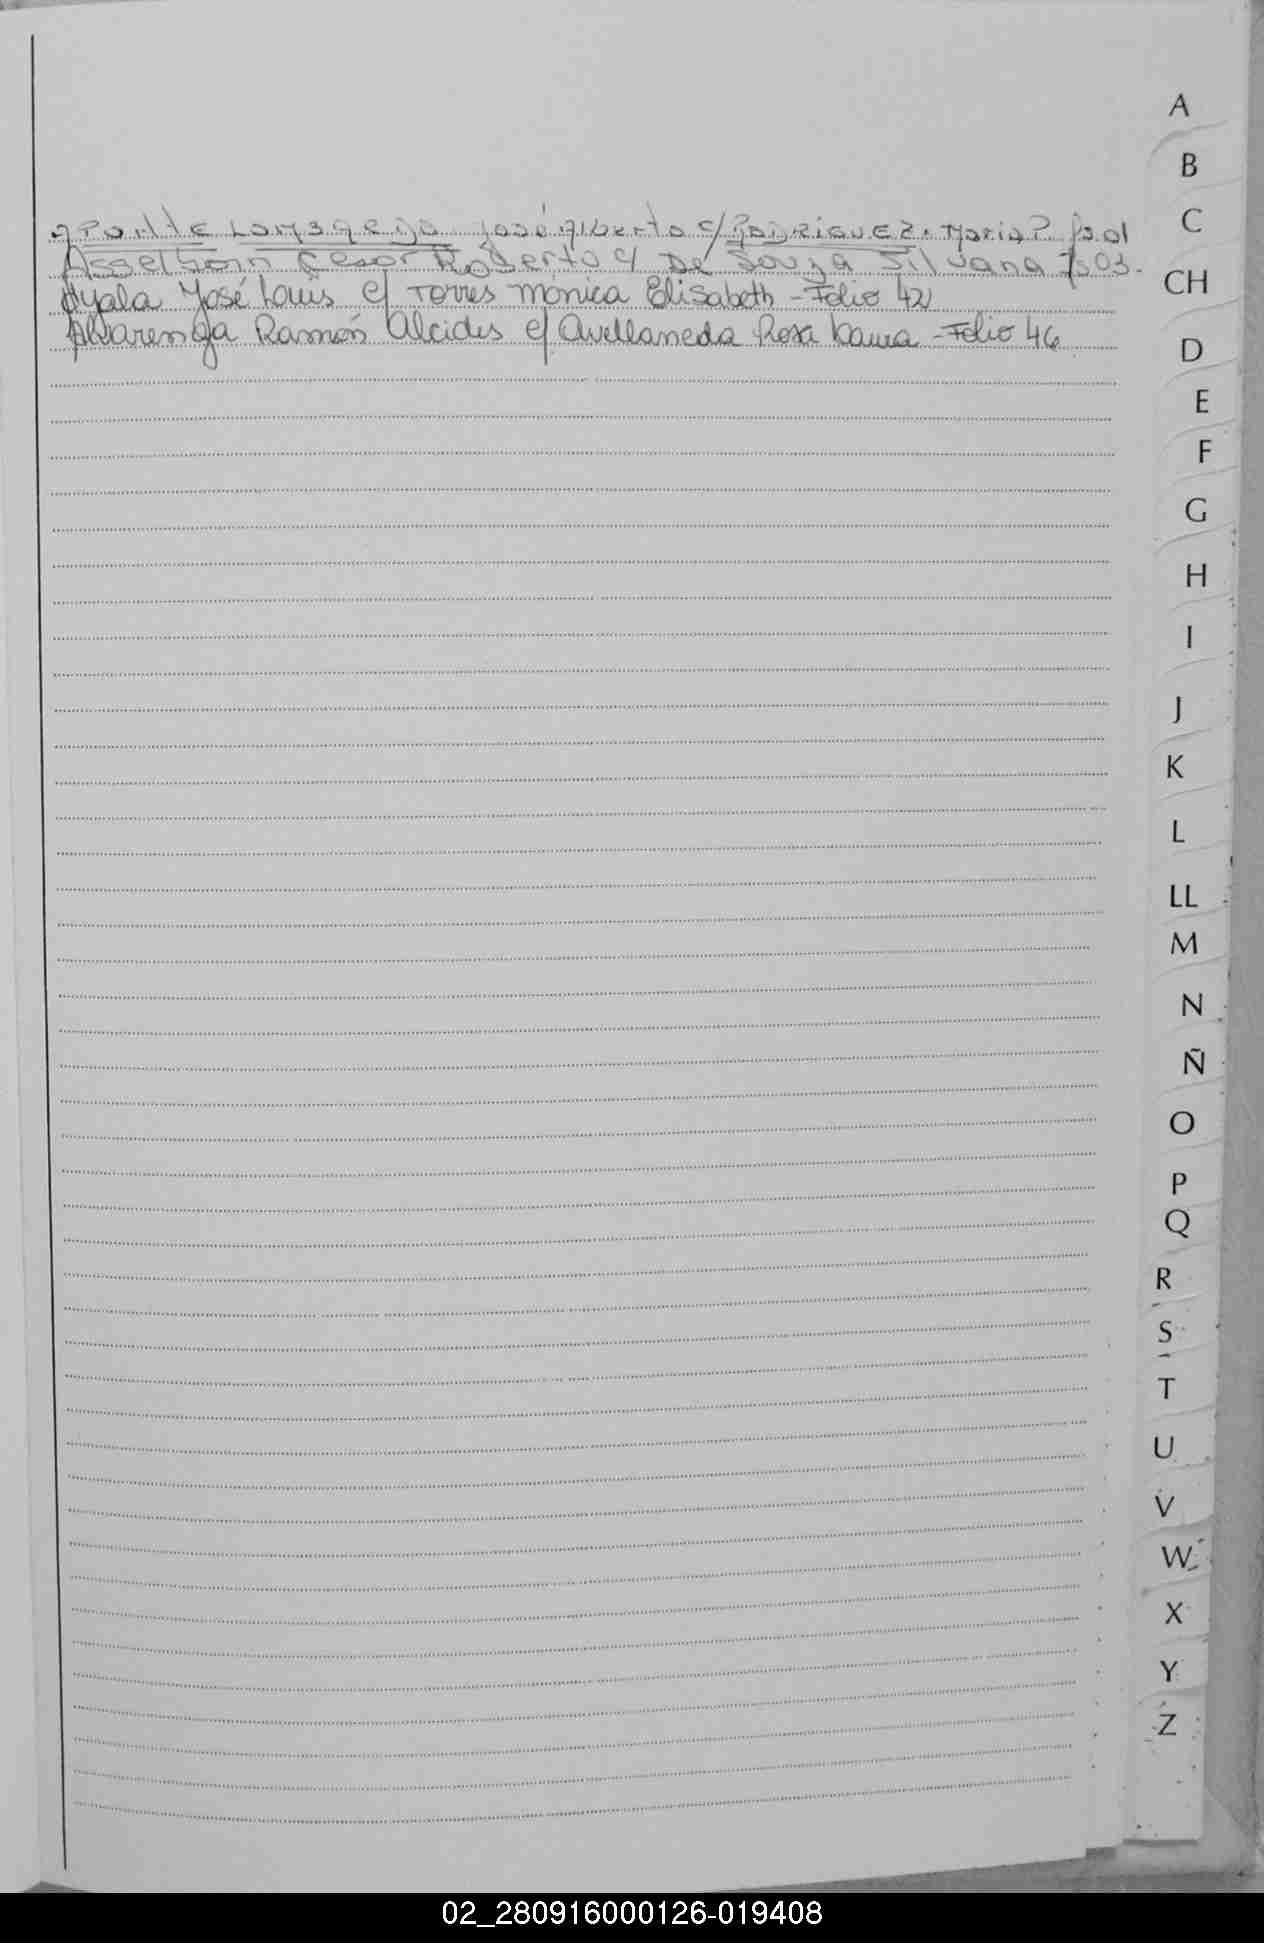 Aponte José Alberto c/ Rodriguez. Maria P. fs. 01
Asselborn Cesar Roberto c/ De Souza Silvana fs 03.
Ayala José Louis c/ Torres Mónica Elisabeth - Folio 42
Alvarenga Ramón Alcides c/ Avellaneda Rosa Laura - Folio 46
A
B
C
CH
D
E
F
G
H
I
J
K
L
LL
M
N
Ñ
O
P
Q
R
S
T
U
V
W
X
Y
Z
02_280916000126-019408